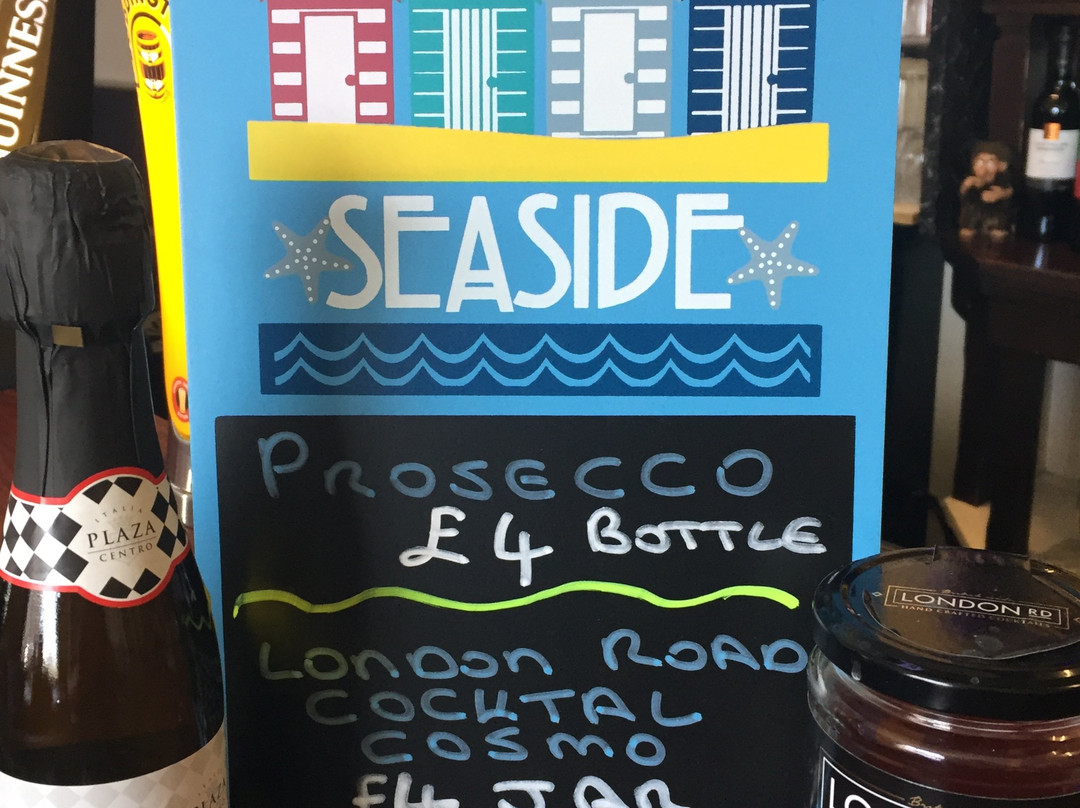 GUINNESS
SEASIDE
PROSECCO
£4 BOTTLE
LONDON ROAD
COCKTAL
COSMO
£4 JAR
ITALIA
PLAZA
CENTRO
PLAZA
LONDON RD
HAND CRAFTED COCKTAILS